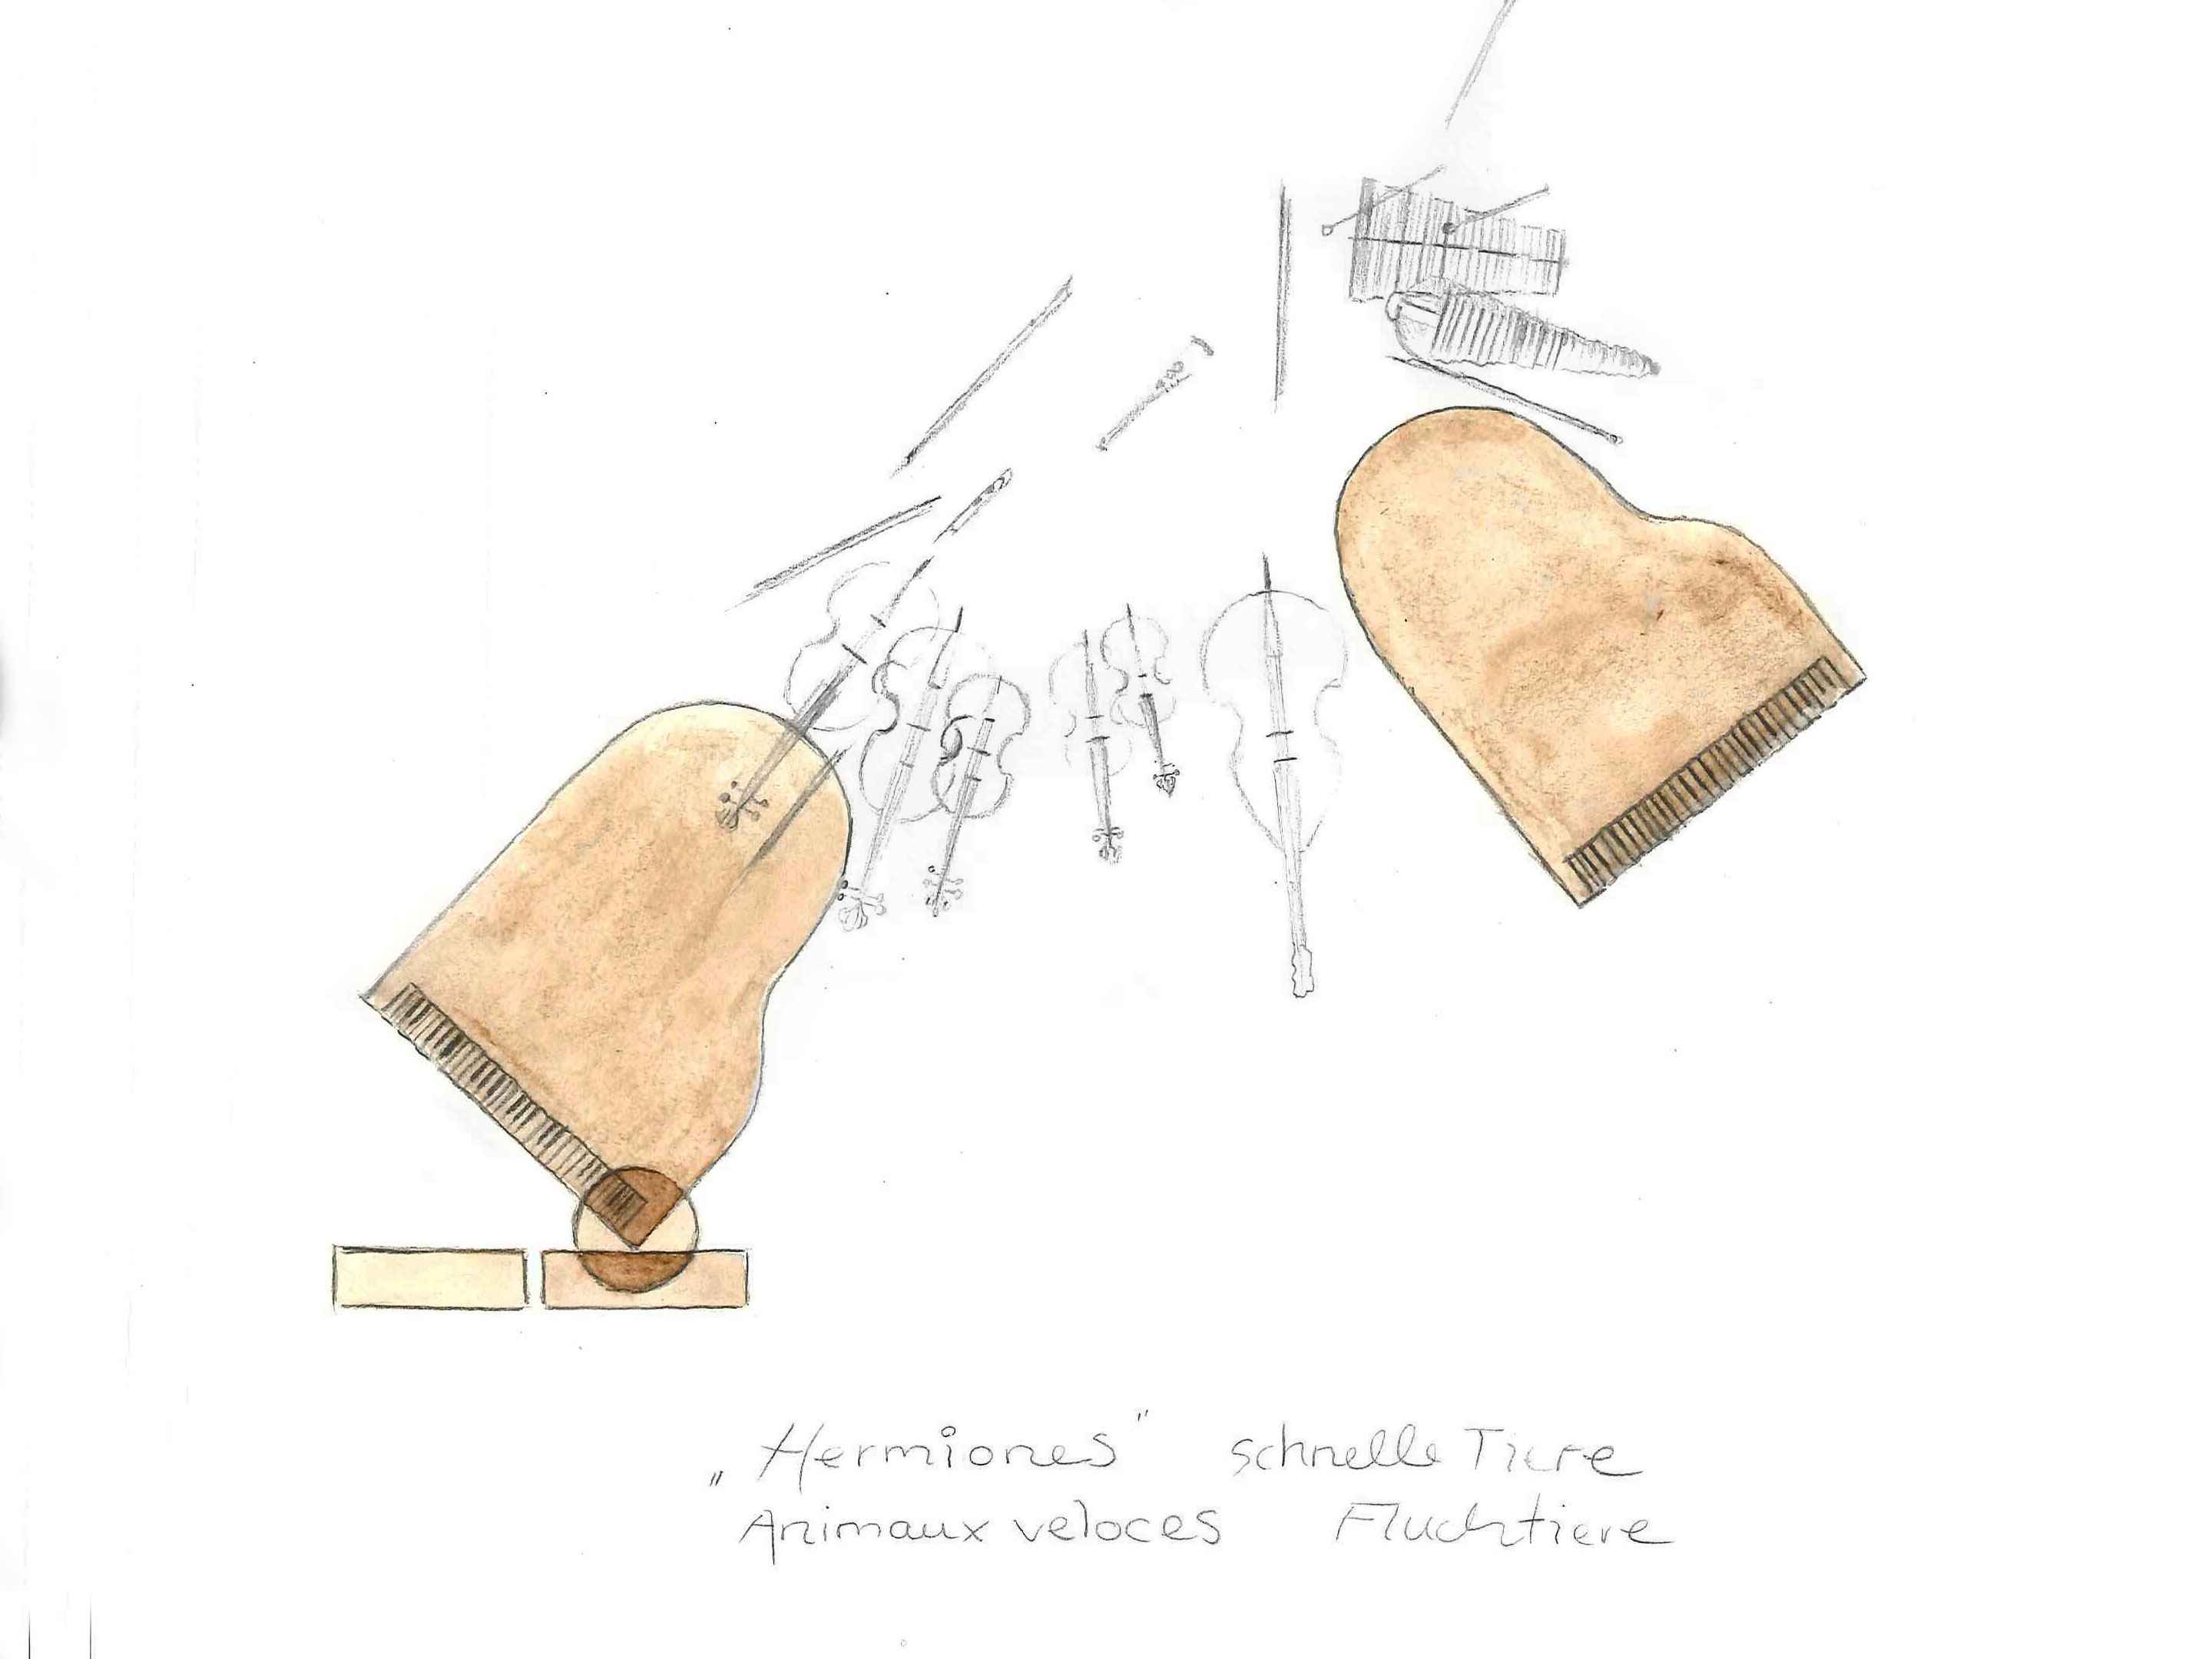 „Hermiones" schnelle Tiere
Animaux veloces Fluchtiere